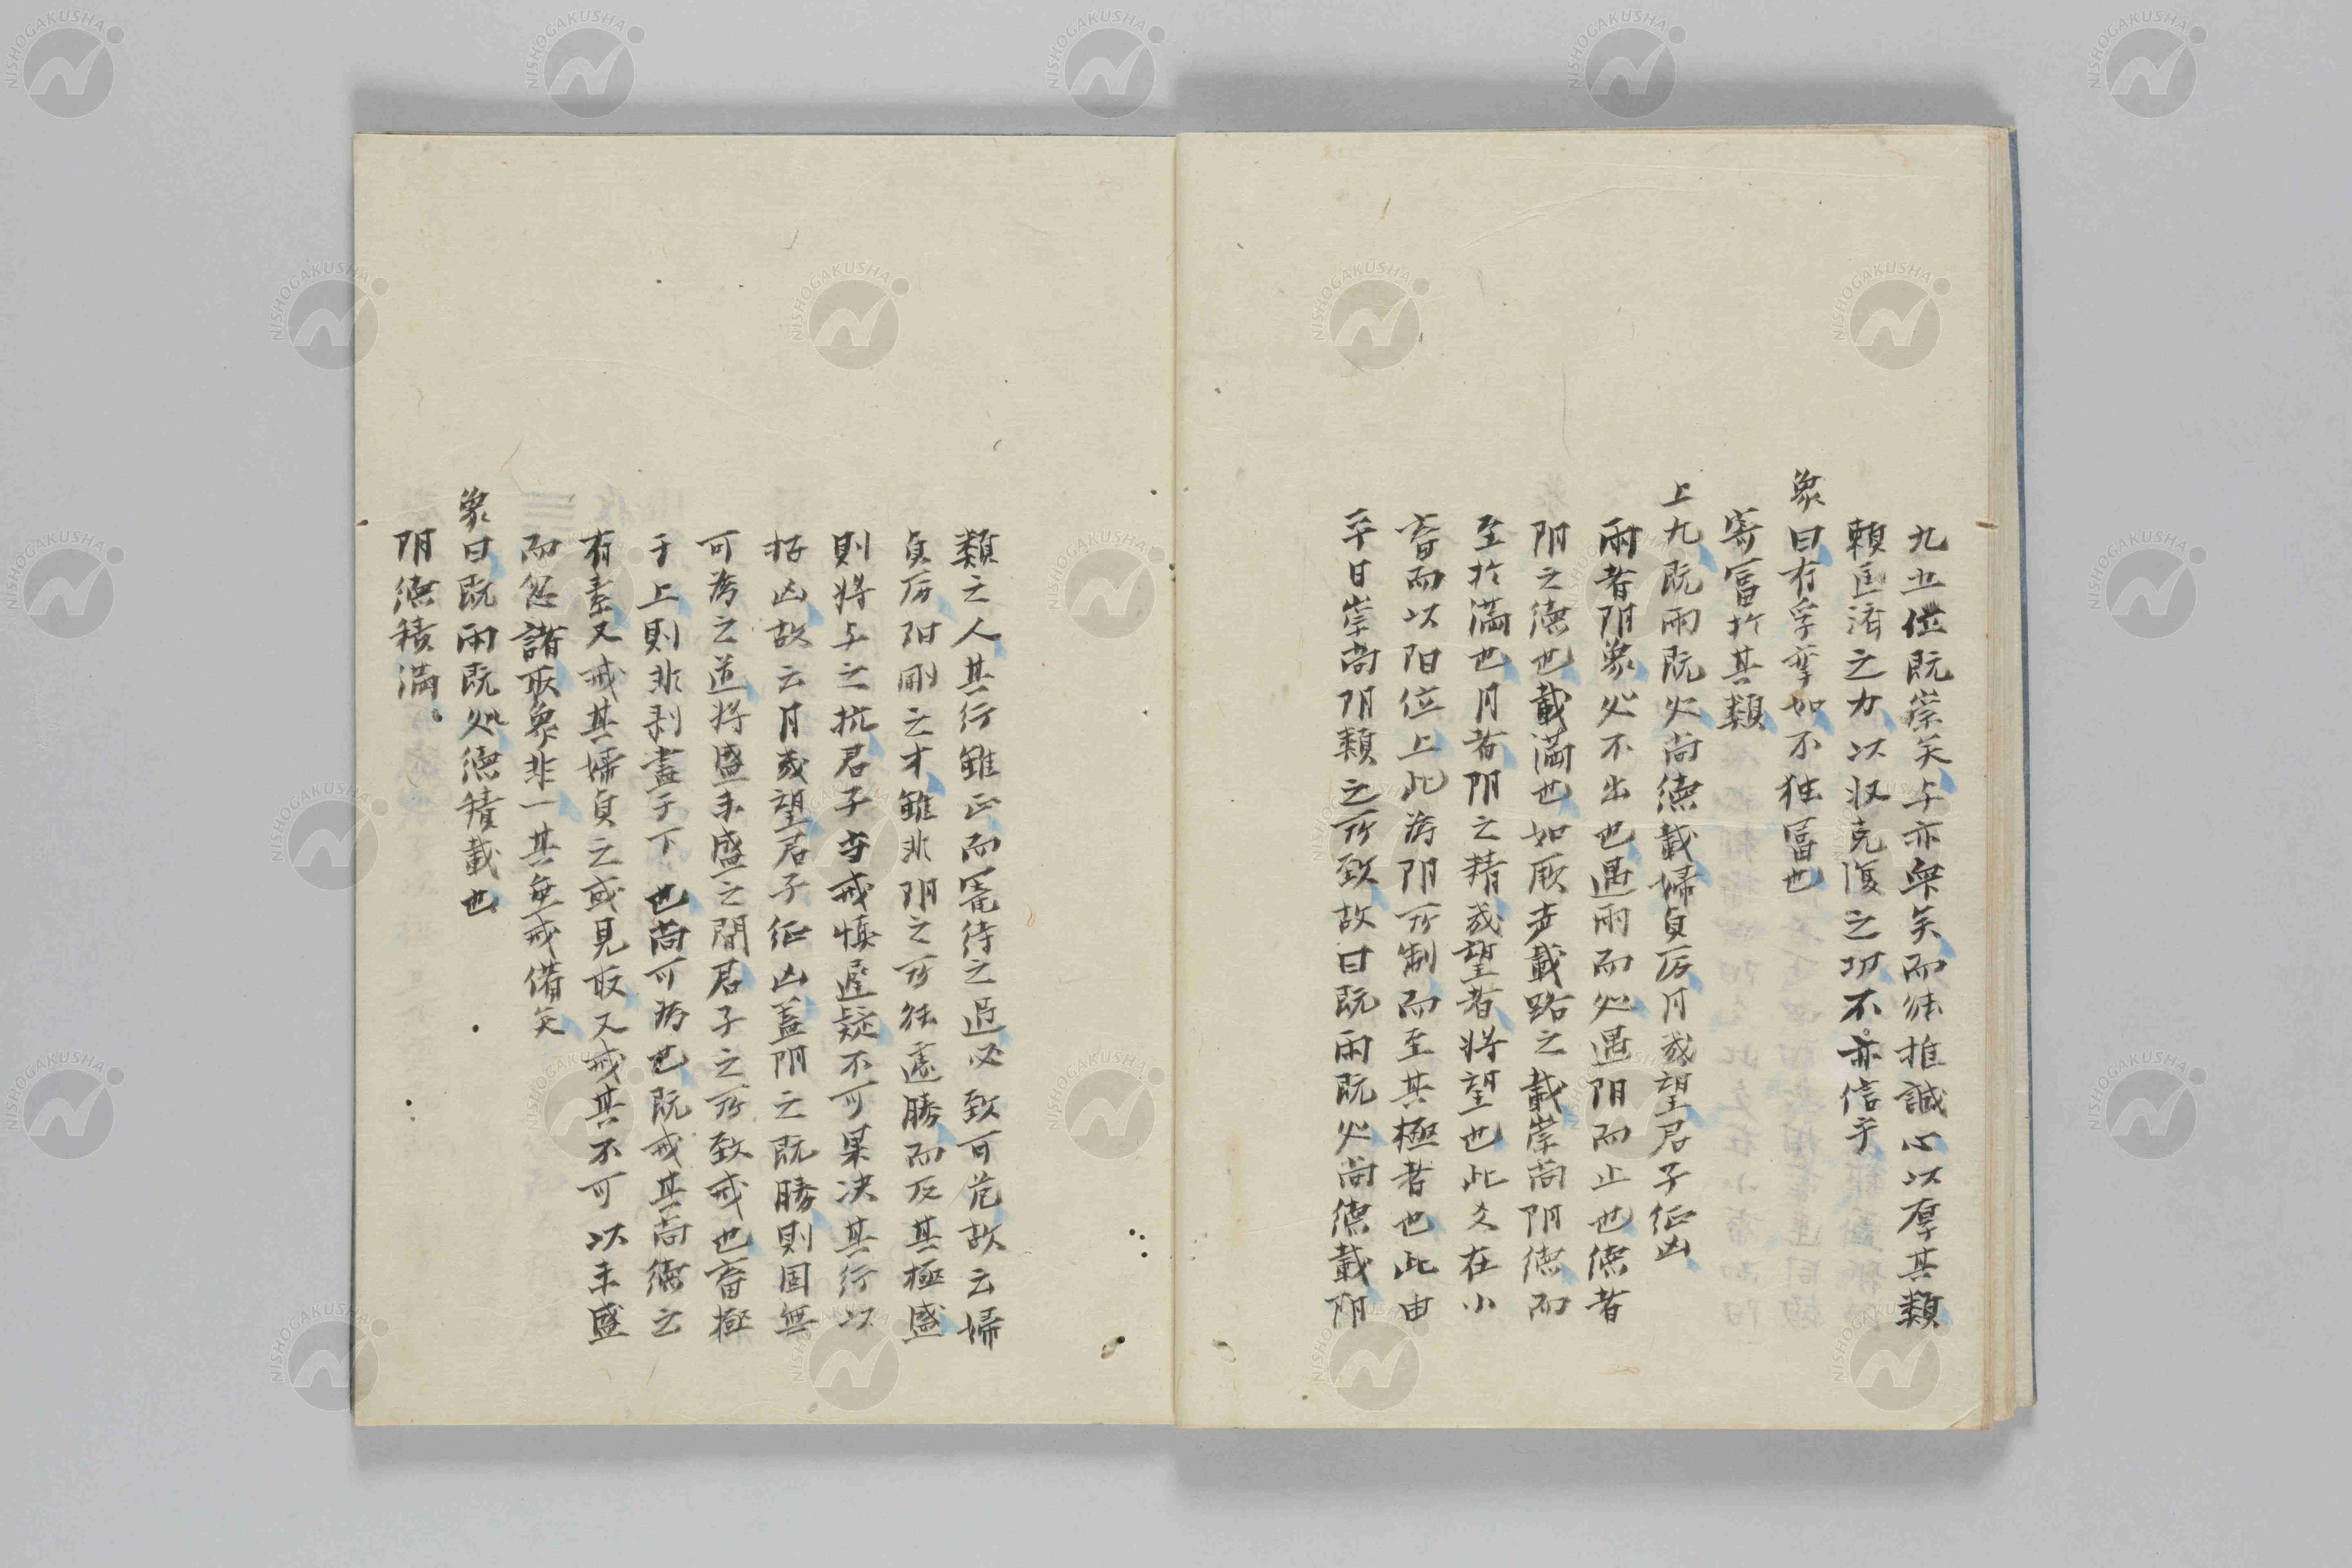 九五位既崇矣与亦無矣而能推誠心以厚其類
頼匡済之力以収克復之功不亦信乎
象曰有孚攣如不独冨也
寄冨於其類
上九既雨既処尚徳載婦貞厉月幾望君子征凶
雨者阴象必不出也遇雨而処遇阴而止也徳者
阴之徳也載満也如厥声載路之載崇尚阴徳而
至於満也月者阴之精幾望者将望也此爻在小
畜而以阳位上此為阴所制而至其極者也此由
平日崇尚阴類之所致故曰既雨既処尚徳載阴
類之人其行雖正而寵待之過必致可危故云婦
貞厉阳剛之才雖非阴之所能遽勝而及其極盛
則将与之抗君子守戒慎遅疑不可果决其行以
招凶故云月幾望君子征凶盖阴之既勝則固無
可為之道将盛未盛之間君子之所致戒也畜極
于上則非剥盡于下也尚可為也既戒其尚徳之
有素又戒其婦貞之或見敗又戒其不可以未盛
而忽諸取象非一其垂戒備矣
象曰既雨既処徳積載也
阴徳積満。